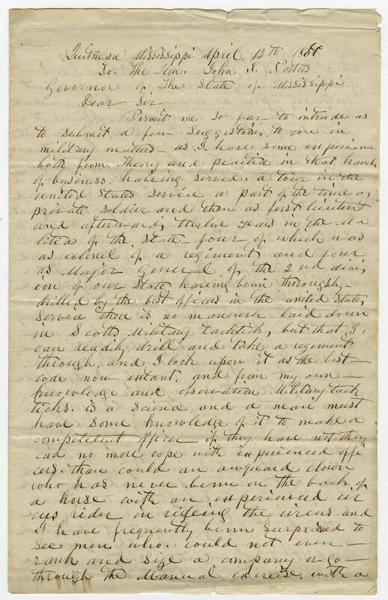 Quitman Mississippi April 12th 18
To. The Hon. John J. Pettus
Governor of The State of Mississippi
Dear Sir
Permit me so far to intrude as
to submit a few suggestions to you in
military matters as I have some experience
both from Theory and practice in that branch
of business. having served a tour in the
united States service a part of the time as
private soldier and then as first lieutent
and afterwards twelve years in the Ma
litea of the State four of which was
as colonel of a regiment, and four
as Major General of the 2nd divis
on of our State having been thoroughly
drilled by the best officers in the united States
service thee is no maneuver laid down
in Scotts Military tacktick, but that I,
can readily drill and take a regiment
through, and I look upon it as the best
code now extant. and from my own
knowledge and observation Military tack
ticks. is a science and a man must
have some knowledge of it to make a
competilent officer if they have not they
can no more cope with experienced offi
cers. than could an awguard clown
who has never been on the back of
a horse with an experienced cir
cus rider in rideing the circus and
I have frequently been surprised to
see men who. could not even
rank and size a company or go
through the Manuel exercise with a